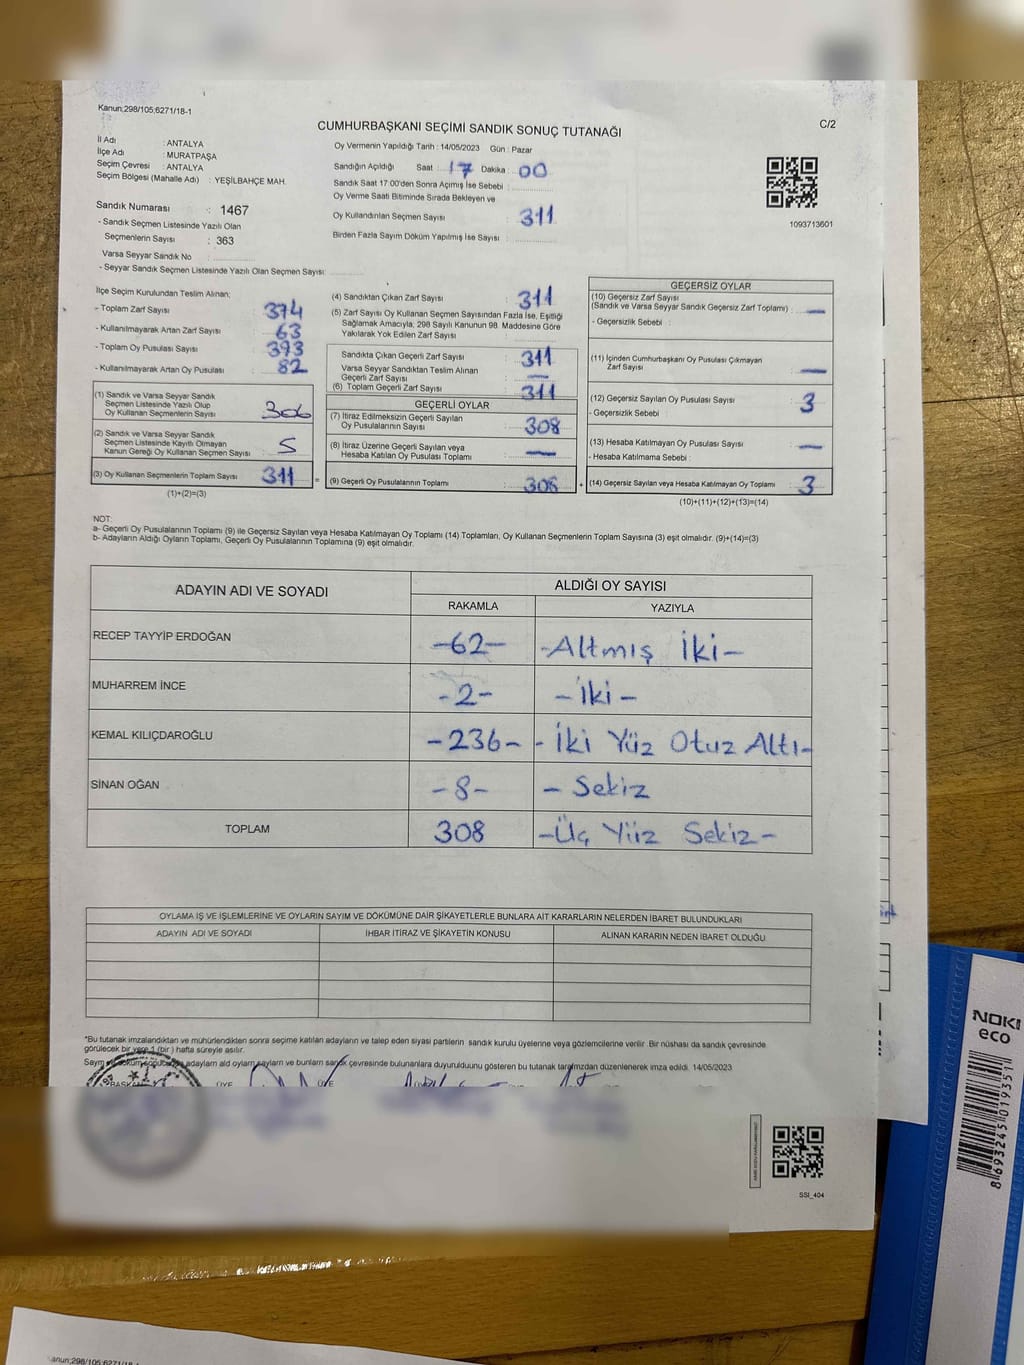 Kanun;298/105;6271/18-1
CUMHURBAŞKANI SEÇİMİ SANDIK SONUÇ TUTANAĞI
C/2
İl Adı : ANTALYA
İlçe Adı : MURATPAŞA
Seçim Çevresi : ANTALYA
Seçim Bölgesi (Mahalle Adı) : YEŞİLBAHÇE MAH.
Sandık Numarası : 1467
- Sandık Seçmen Listesinde Yazılı Olan
Seçmenlerin Sayısı : 363
Varsa Seyyar Sandık No :
- Seyyar Sandık Seçmen Listesinde Yazılı Olan Seçmen Sayısı:
Oy Vermenin Yapıldığı Tarih : 14/05/2023 Gün : Pazar
Sandığın Açıldığı Saat : 17 Dakika : 00
Sandık Saat 17:00'den Sonra Açımış İse Sebebi :
Oy Verme Saati Bitiminde Sırada Bekleyen ve
Oy Kullandırılan Seçmen Sayısı : 311
Birden Fazla Sayım Döküm Yapılmış İse Sayısı :
1093713601
İlçe Seçim Kurulundan Teslim Alınan;
- Toplam Zarf Sayısı : 374
- Kullanılmayarak Artan Zarf Sayısı : 63
- Toplam Oy Pusulası Sayısı : 393
- Kullanılmayarak Artan Oy Pusulası : 82
(1) Sandık ve Varsa Seyyar Sandık
Seçmen Listesinde Yazılı Olup
Oy Kullanan Seçmenlerin Sayısı : 306
(2) Sandık ve Varsa Seyyar Sandık
Seçmen Listesinde Kayıtlı Olmayan
Kanun Gereği Oy Kullanan Seçmen Sayısı : 5
(3) Oy Kullanan Seçmenlerin Toplam Sayısı : 311
(1)+(2)=(3)
(4) Sandıktan Çıkan Zarf Sayısı : 311
(5) Zarf Sayısı Oy Kullanan Seçmen Sayısından Fazla İse, Eşitliği
Sağlamak Amacıyla; 298 Sayılı Kanunun 98. Maddesine Göre
Yakılarak Yok Edilen Zarf Sayısı :
Sandıkta Çıkan Geçerli Zarf Sayısı : 311
Varsa Seyyar Sandıktan Teslim Alınan
Geçerli Zarf Sayısı : —
(6) Toplam Geçerli Zarf Sayısı : 311
GEÇERLİ OYLAR
(7) İtiraz Edilmeksizin Geçerli Sayılan
Oy Pusulalarının Sayısı : 308
(8) İtiraz Üzerine Geçerli Sayılan veya
Hesaba Katılan Oy Pusulası Toplamı : —
= (9) Geçerli Oy Pusulalarının Toplamı : 308
GEÇERSİZ OYLAR
(10) Geçersiz Zarf Sayısı
(Sandık ve Varsa Seyyar Sandık Geçersiz Zarf Toplamı) : —
- Geçersizlik Sebebi :
(11) İçinden Cumhurbaşkanı Oy Pusulası Çıkmayan
Zarf Sayısı : —
(12) Geçersiz Sayılan Oy Pusulası Sayısı : 3
- Geçersizlik Sebebi :
(13) Hesaba Katılmayan Oy Pusulası Sayısı : —
- Hesaba Katılmama Sebebi :
+ (14) Geçersiz Sayılan veya Hesaba Katılmayan Oy Toplamı : 3
(10)+(11)+(12)+(13)=(14)
NOT:
a- Geçerli Oy Pusulalarının Toplamı (9) ile Geçersiz Sayılan veya Hesaba Katılmayan Oy Toplamı (14) Toplamları, Oy Kullanan Seçmenlerin Toplam Sayısına (3) eşit olmalıdır. (9)+(14)=(3)
b- Adayların Aldığı Oyların Toplamı, Geçerli Oy Pusulalarının Toplamına (9) eşit olmalıdır.
ADAYIN ADI VE SOYADI ALDIĞI OY SAYISI
RAKAMLA YAZIYLA
RECEP TAYYİP ERDOĞAN -62- -Altmış İki-
MUHARREM İNCE -2- -İki-
KEMAL KILIÇDAROĞLU -236- -İki Yüz Otuz Altı-
SİNAN OĞAN -8- - Sekiz
TOPLAM 308 -Üç Yüz Sekiz-
OYLAMA İŞ VE İŞLEMLERİNE VE OYLARIN SAYIM VE DÖKÜMÜNE DAİR ŞİKAYETLERLE BUNLARA AİT KARARLARIN NELERDEN İBARET BULUNDUKLARI
ADAYIN ADI VE SOYADI İHBAR İTİRAZ VE ŞİKAYETİN KONUSU ALINAN KARARIN NEDEN İBARET OLDUĞU
*Bu tutanak imzalandıktan ve mühürlendikten sonra seçime katılan adayların ve talep eden siyasi partilerin sandık kurulu üyelerine veya gözlemcilerine verilir. Bir nüshası da sandık çevresinde
görülecek bir yere 1 (bir) hafta süreyle asılır.
adayların ald oyların sayların ve bunların sandık çevresinde bulunanlara duyurulduunu gösteren bu tutanak tarafmzdan düzenlenerek imza edildi. 14/05/2023
BAŞKAN ÜYE ÜYE
SSİ_404
NOKI
eco
8 693245 019351
Kanun;298/105;6271/18-1